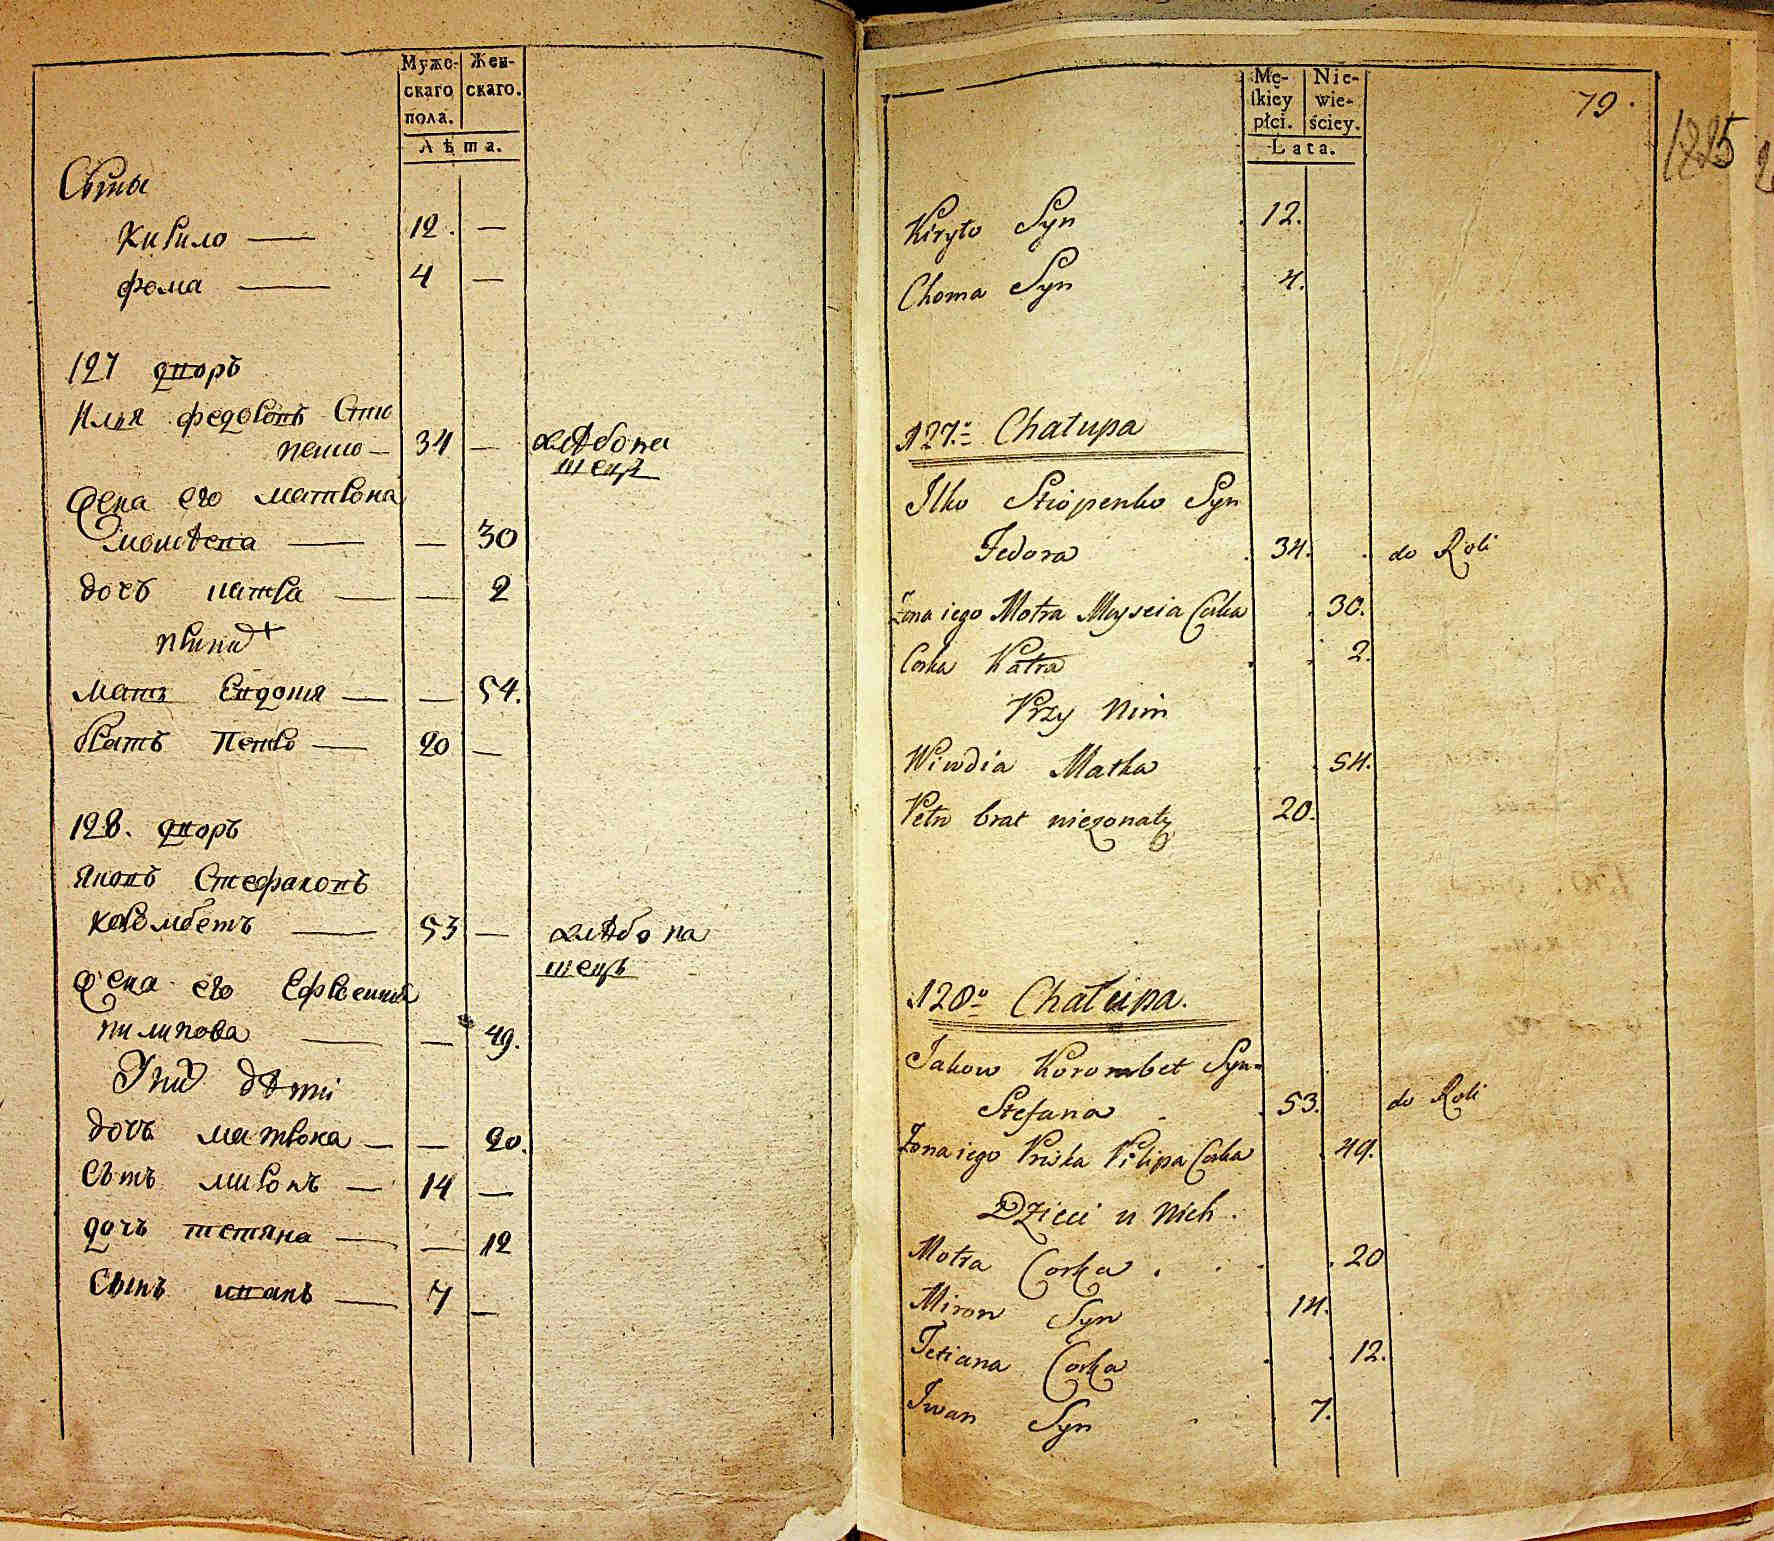 Мужс- Жен-
скаго скаго.
пола.
Лѣта.
Сыны
Кирило — 12. —
фома — 4 —
127 дворъ
Илья федоровъ Стіо
пенко — 34 — хлѣбопа
шецъ
Жена его матрона
моисѣева — — 30
дочь катра — — 2
при нихъ
мать Евдокия — — 54.
братъ Петро — 20 —
128. дворъ
яковъ Стефановъ
коромбетъ — 53 — хлѣбопа
шецъ
Жена его Ефросиния
пилипова — — 49.
У них дѣти
дочь матрона — — 20.
Сынъ миронъ — 14 —
дочь тетяна — — 12
Сынъ иванъ — 7 —
Mę- Nie-
skiey wie-
płci. ściey.
Lata.
79.
1225
Kiryło Syn 12.
Choma Syn 4.
127.o Chałupa
Ilko Stiopenko Syn
Fedora 34. do Roli
Żona iego Motra Moyseia Corka 30.
Corka Katra 2.
Przy Nim
Wiwdia Matka 54.
Petro brat niezonaty 20.
128o Chałupa.
Jakow Korombet Syn
Stefana 53. do Roli
Żona iego Pryska Pilipa Corka 49.
Dzieci u Nich.
Motra Corka 20
Miron Syn 14.
Tetiana Corka 12.
Iwan Syn 7.